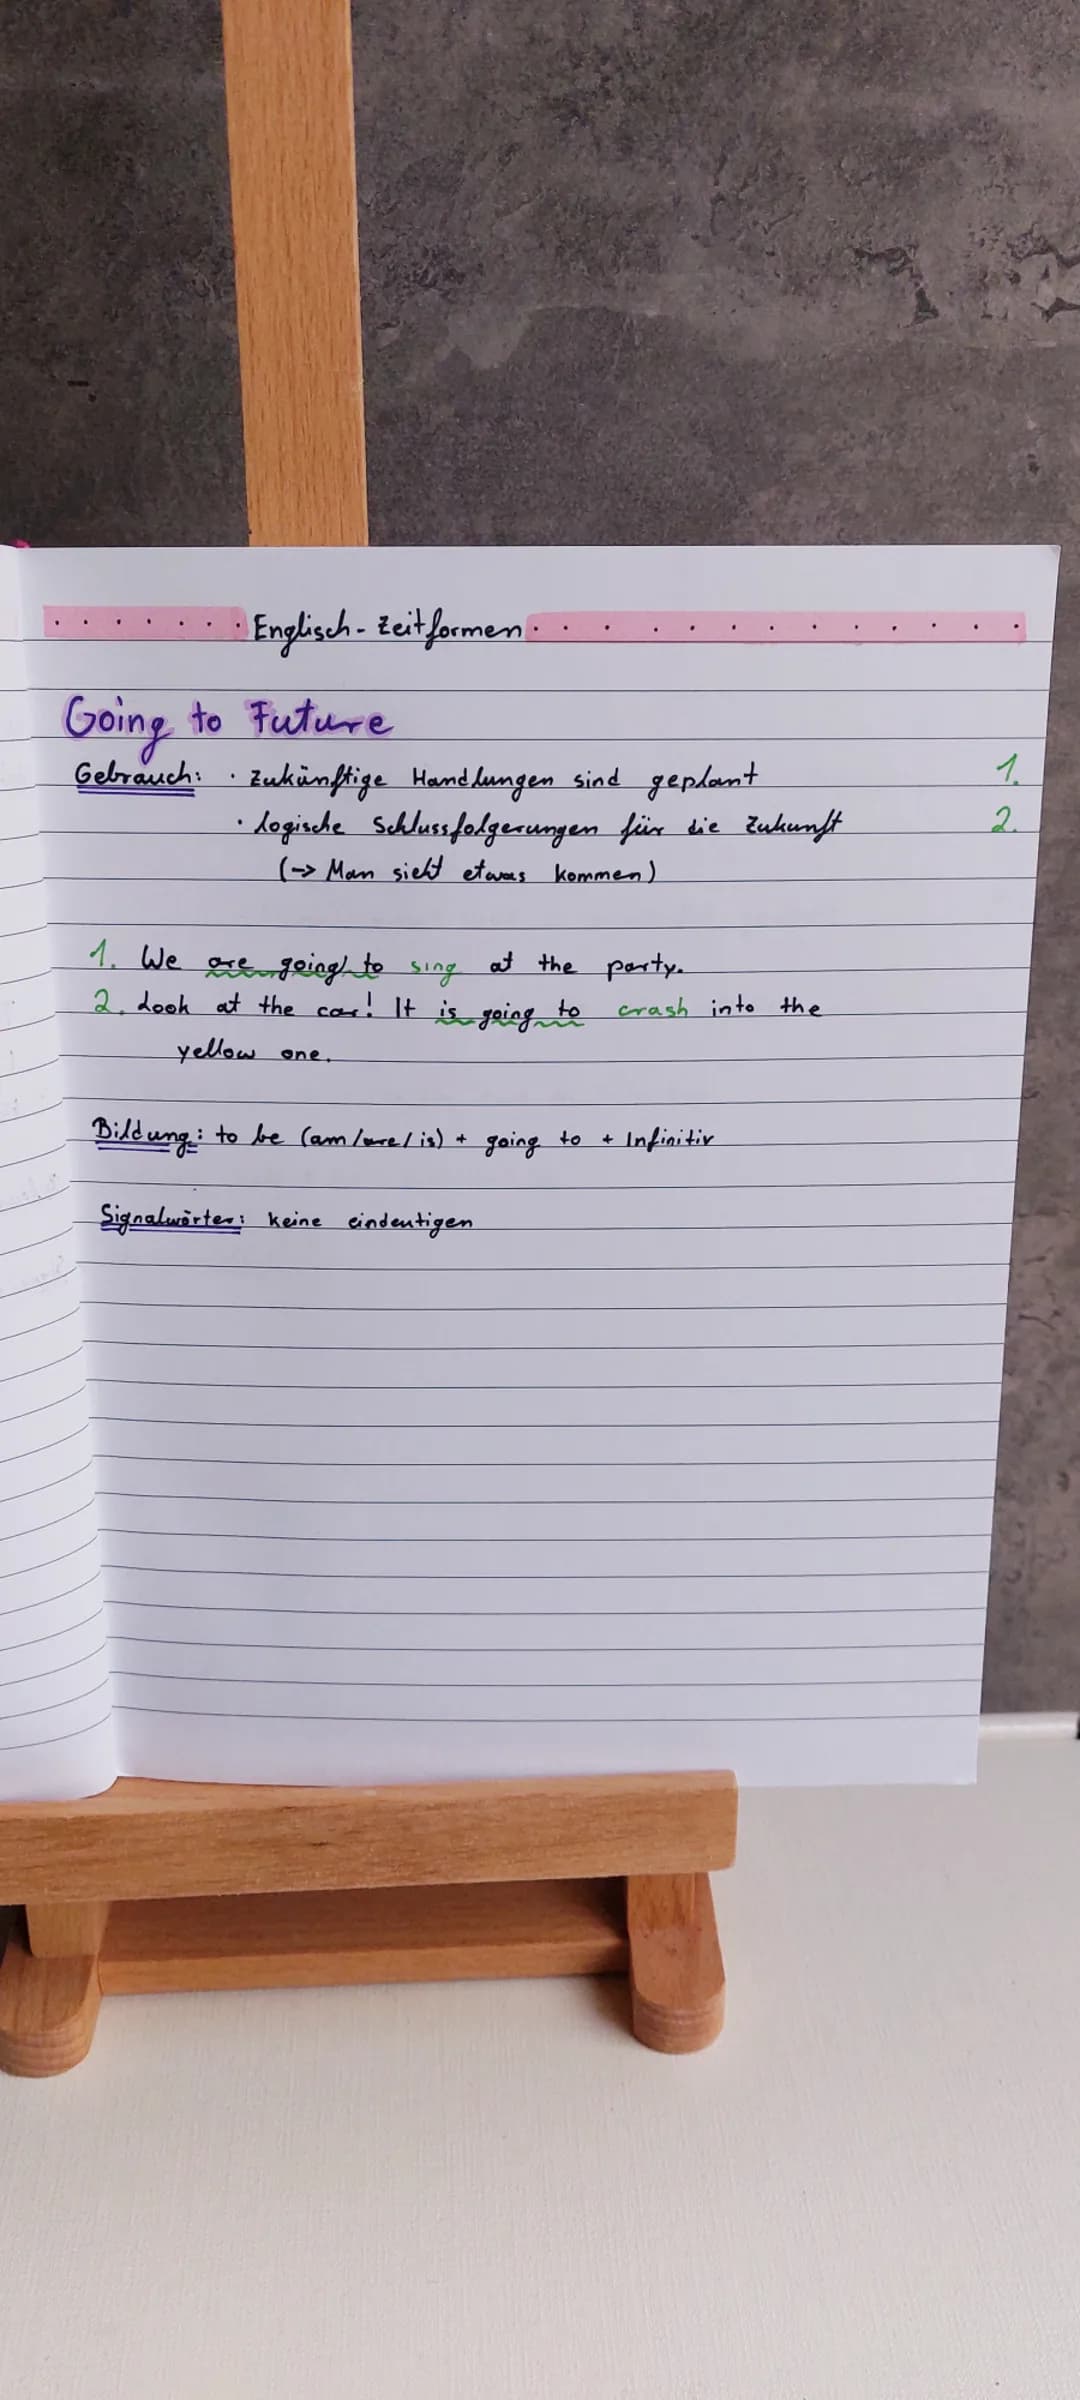 Englisch - Zeitformen
Going to Future
Gebrauch: · Zukünftige Handlungen sind geplant 1.
· logische Schlussfolgerungen für die Zukunft 2.
(-> Man sieht etwas kommen)
1. We are going to sing at the party.
2. Look at the car! It is going to crash into the
yellow one.
Bildung: to be (am/are/is) + going to + Infinitiv
Signalwörter: keine eindeutigen